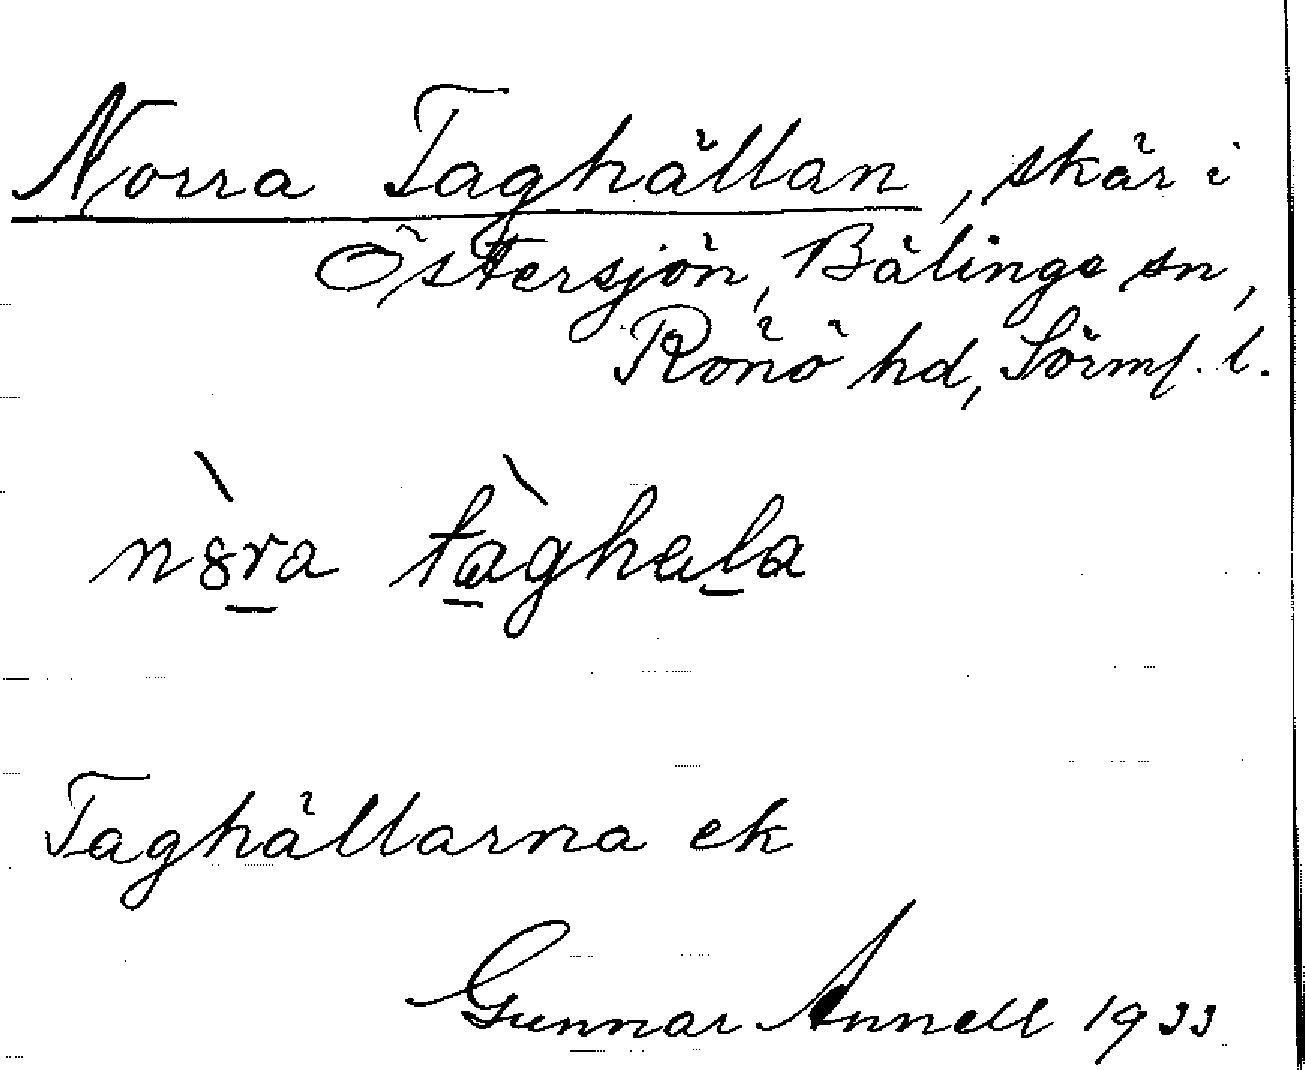 Norra Taghällan, skär i
Östersjön, Bälinge sn,
Rönö hd, Sörml. l.
n8ra tàghala
Taghällarna ek
Gunnar Annell 1933